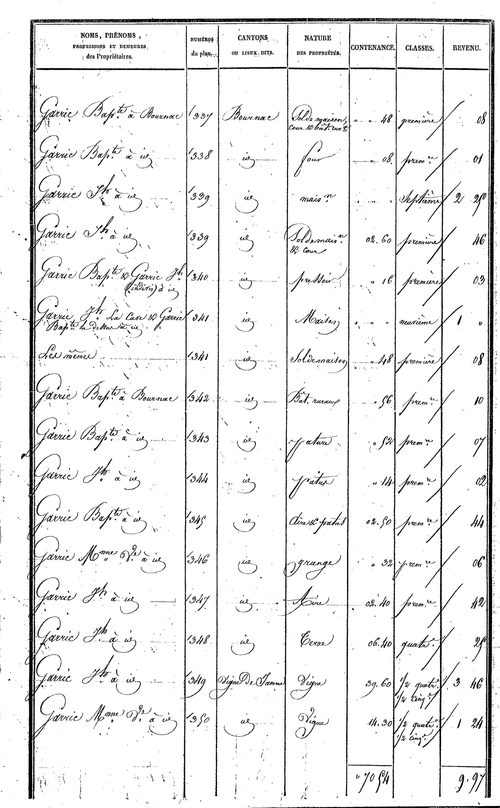 NOMS, PRÉNOMS, PROFESSIONS ET DEMEURES des Propriétaires. NUMÉROS du plan. CANTONS OU LIEUX-DITS. NATURE DES PROPRIÉTÉS. CONTENANCE. CLASSES. REVENU.
Garric Bapte à Bournac 1337 Bournac Sol de maison, " " 48 première 08
cour &
Garric Bapte à id 1338 id four " 08 prem.re 01
Garric Jh à id 1339 id mais.n " " septième 2 25
Garric Jh à id 1339 id Sol de mais.n 02.60 première 46
& cour
Garric Bapte & Garric Jh 1340 id pressoir " 16 première 03
(indivis) à id
Garric Jh La Caze & Garric 1341 id Maison " " neuvième 1 "
Bapte à id
Les même 1341 id Sol de maison " 48 première 08
Garric Bapte à Bournac 1342 id Bât. ruraux " 56 prem.re 10
Garric Bapte à id 1343 id pature " 52 prem.re 07
Garric Jh à id 1344 id patus " 14 prem.re 02
Garric Bapte à id 1345 id aire & patus 02.50 prem.re 44
Garric Mme Ve à id 1346 id grange " 32 prem.re 06
Garric Jh à id 1347 id Aire 02.40 prem.re 42
Garric Jh à id 1348 id Terre 06.40 quatr.e 25
Garric Jh à id 1349 Vigne 39.60 1/2 quatr.e 3 46
1/2 cinq.e
Garric Mme Ve à id 1350 id Vigne 14.30 1/2 quatr.e 1 24
1/2 cinq.e
" 70 54 9.97